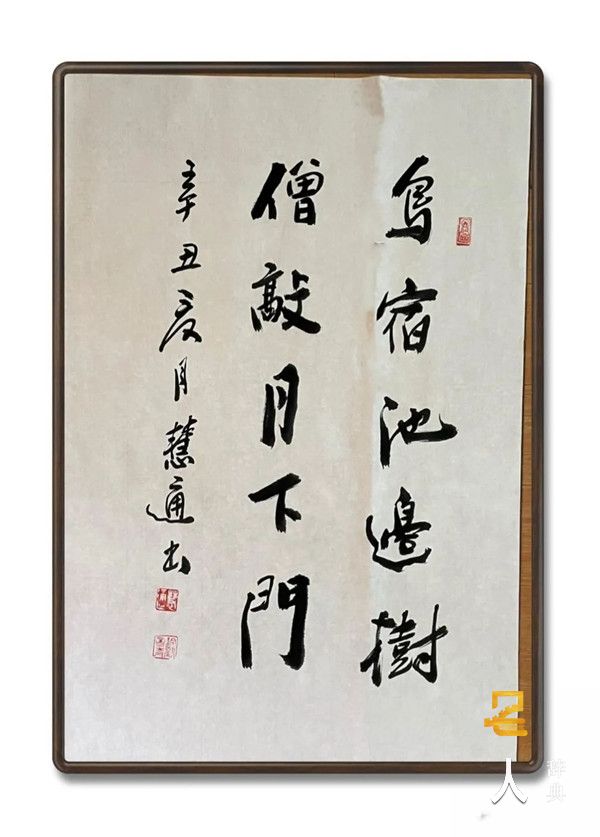 鳥宿池邊樹
僧敲月下門
辛丑夏月慧通书
名人
辞典